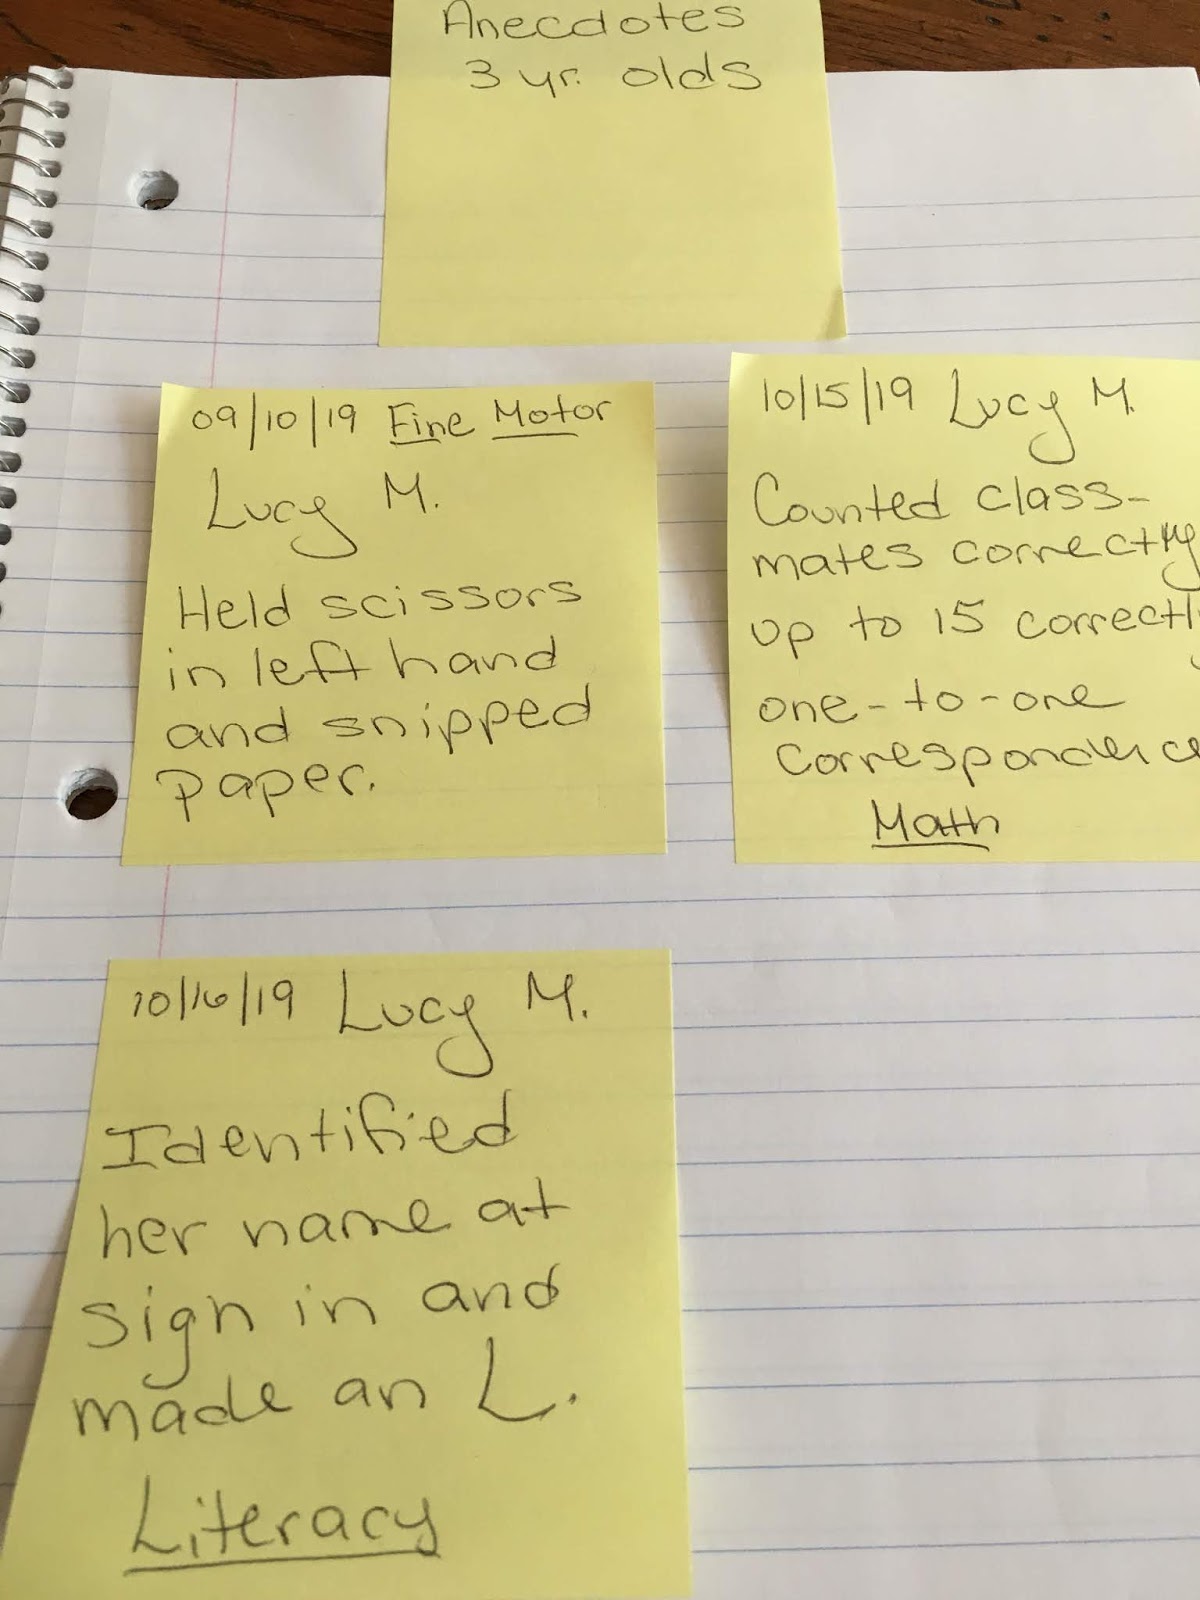 Anecdotes
3 yr. olds
09/10/19 Fine Motor
Lucy M.
Held scissors
in left hand
and snipped
paper.
10/15/19 Lucy M.
Counted class-
mates correctly
up to 15 correctly
one-to-one
correspondence
Math
10/16/19 Lucy M.
Identified
her name at
sign in and
made an L.
Literacy